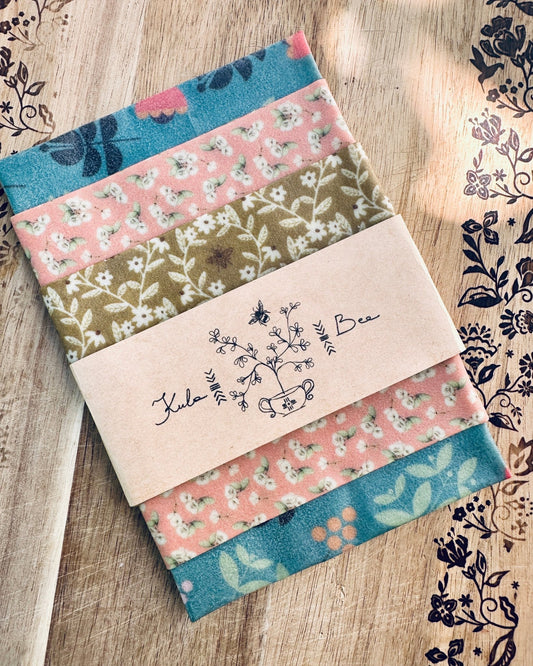 Kula Bee